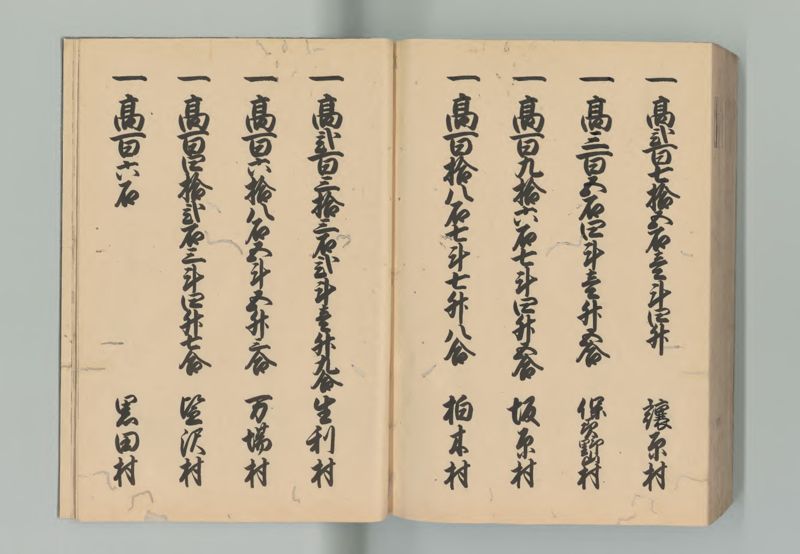 一 高弐百七拾五石壱斗四升 譲原村
一 高三百五石四斗壱升五合 保美濃山村
一 高百九拾六石七斗四升五合 坂原村
一 高百拾八石七斗七升八合 柏木村
一 高弐百三拾三石弐斗壱升九合 生利村
一 高百六拾八石五斗五升三合 万場村
一 高百四拾弐石三斗四升七合 塩沢村
一 高百六石 黒田村